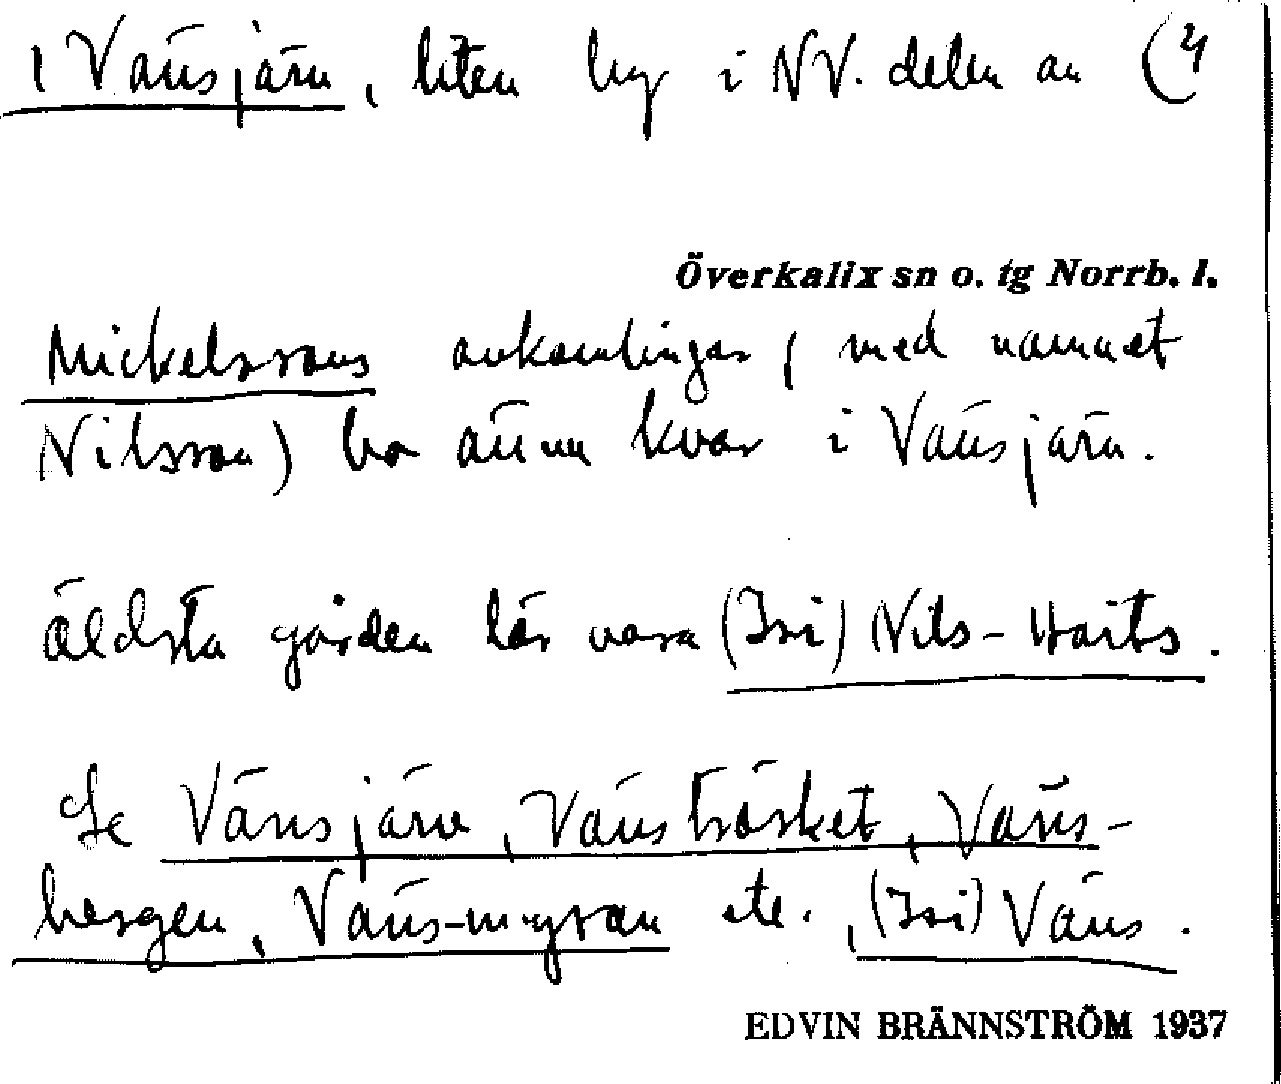 1 Vänsjärv, liten by i NV. delen av (4
Överkalix sn o. tg Norrb. l.
Mickelssons avkomlingar (med namnet
Nilsson) bo ännu kvar i Vänsjärv.
Äldsta gården lär vara (Isi) Nils-Haits.
Se Vänsjärv, Vänsträsket, Väns-
bergen, Väns-myran etc., (Isi) Väns.
EDVIN BRÄNNSTRÖM 1937